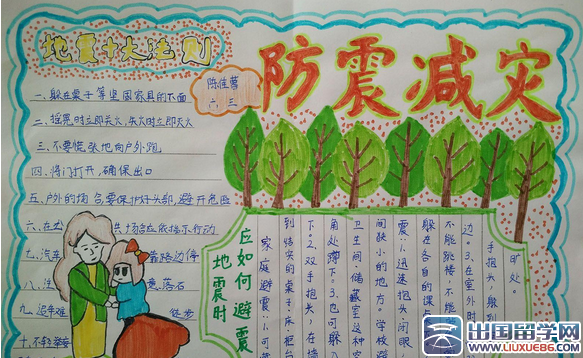 地震十大法则
防震减灾
陈佳
六.三
一、躲在桌子等坚固家具的下面
二、摇晃时立即关火,失火时立即灭火
三、不要慌张地向户外跑
四、将门打开,确保出口
五、户外的场合要保护好头部,避开危险
六、在 共场合应依指示行动
七、汽车 靠路边停
八、注 意落石
九、避难 徒步
十、不要轻
地震时
应如何避震
家庭避震:1.可
到结实的桌子、床柜台
下。2.双手抱头,在墙
角处蹲下。3.也可躲入
卫生间、储藏室这种空
间狭小的地方。学校避
震:1.迅速抱头闭眼
躲在各自的课
不能跳楼,不能
边。3.在室外时
手抱头,躲到
旷处。
出国留学网
www.liuxue86.com